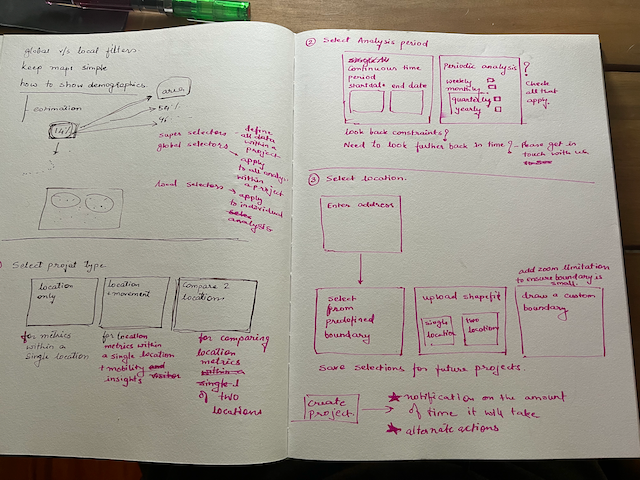 global v/s local filters
keep maps simple
how to show demographics
area
estimation
54%
14%
super selectors - define
all data
within a
project
global selectors → apply
to all analysis
within
a project
local selectors → apply
to individual
analysis
Select projet type
location
only
location
+ movement
Compare 2
locations
for metrics
within a
single location
for location
metrics within
a single location
+ mobility and
insights visitor
for comparing
location
metrics
within a
single l
of two
locations
② Select Analysis period
Continuous time
period
start date end date
Periodic analysis ?
weekly
monthly
quarterly
yearly
Check
all that
apply.
Look back constraints?
Need to look farther back in time? - Please get in
touch with us
③ Select location.
Enter address
add zoom limitation
to ensure boundary is
small.
Select
from
predefined
boundary
upload shapefit
single
location
two
location
draw a custom
boundary
Save selections for future projects
Create
project.
→ ★ notification on the amount
of time it will take
★ alternate actions